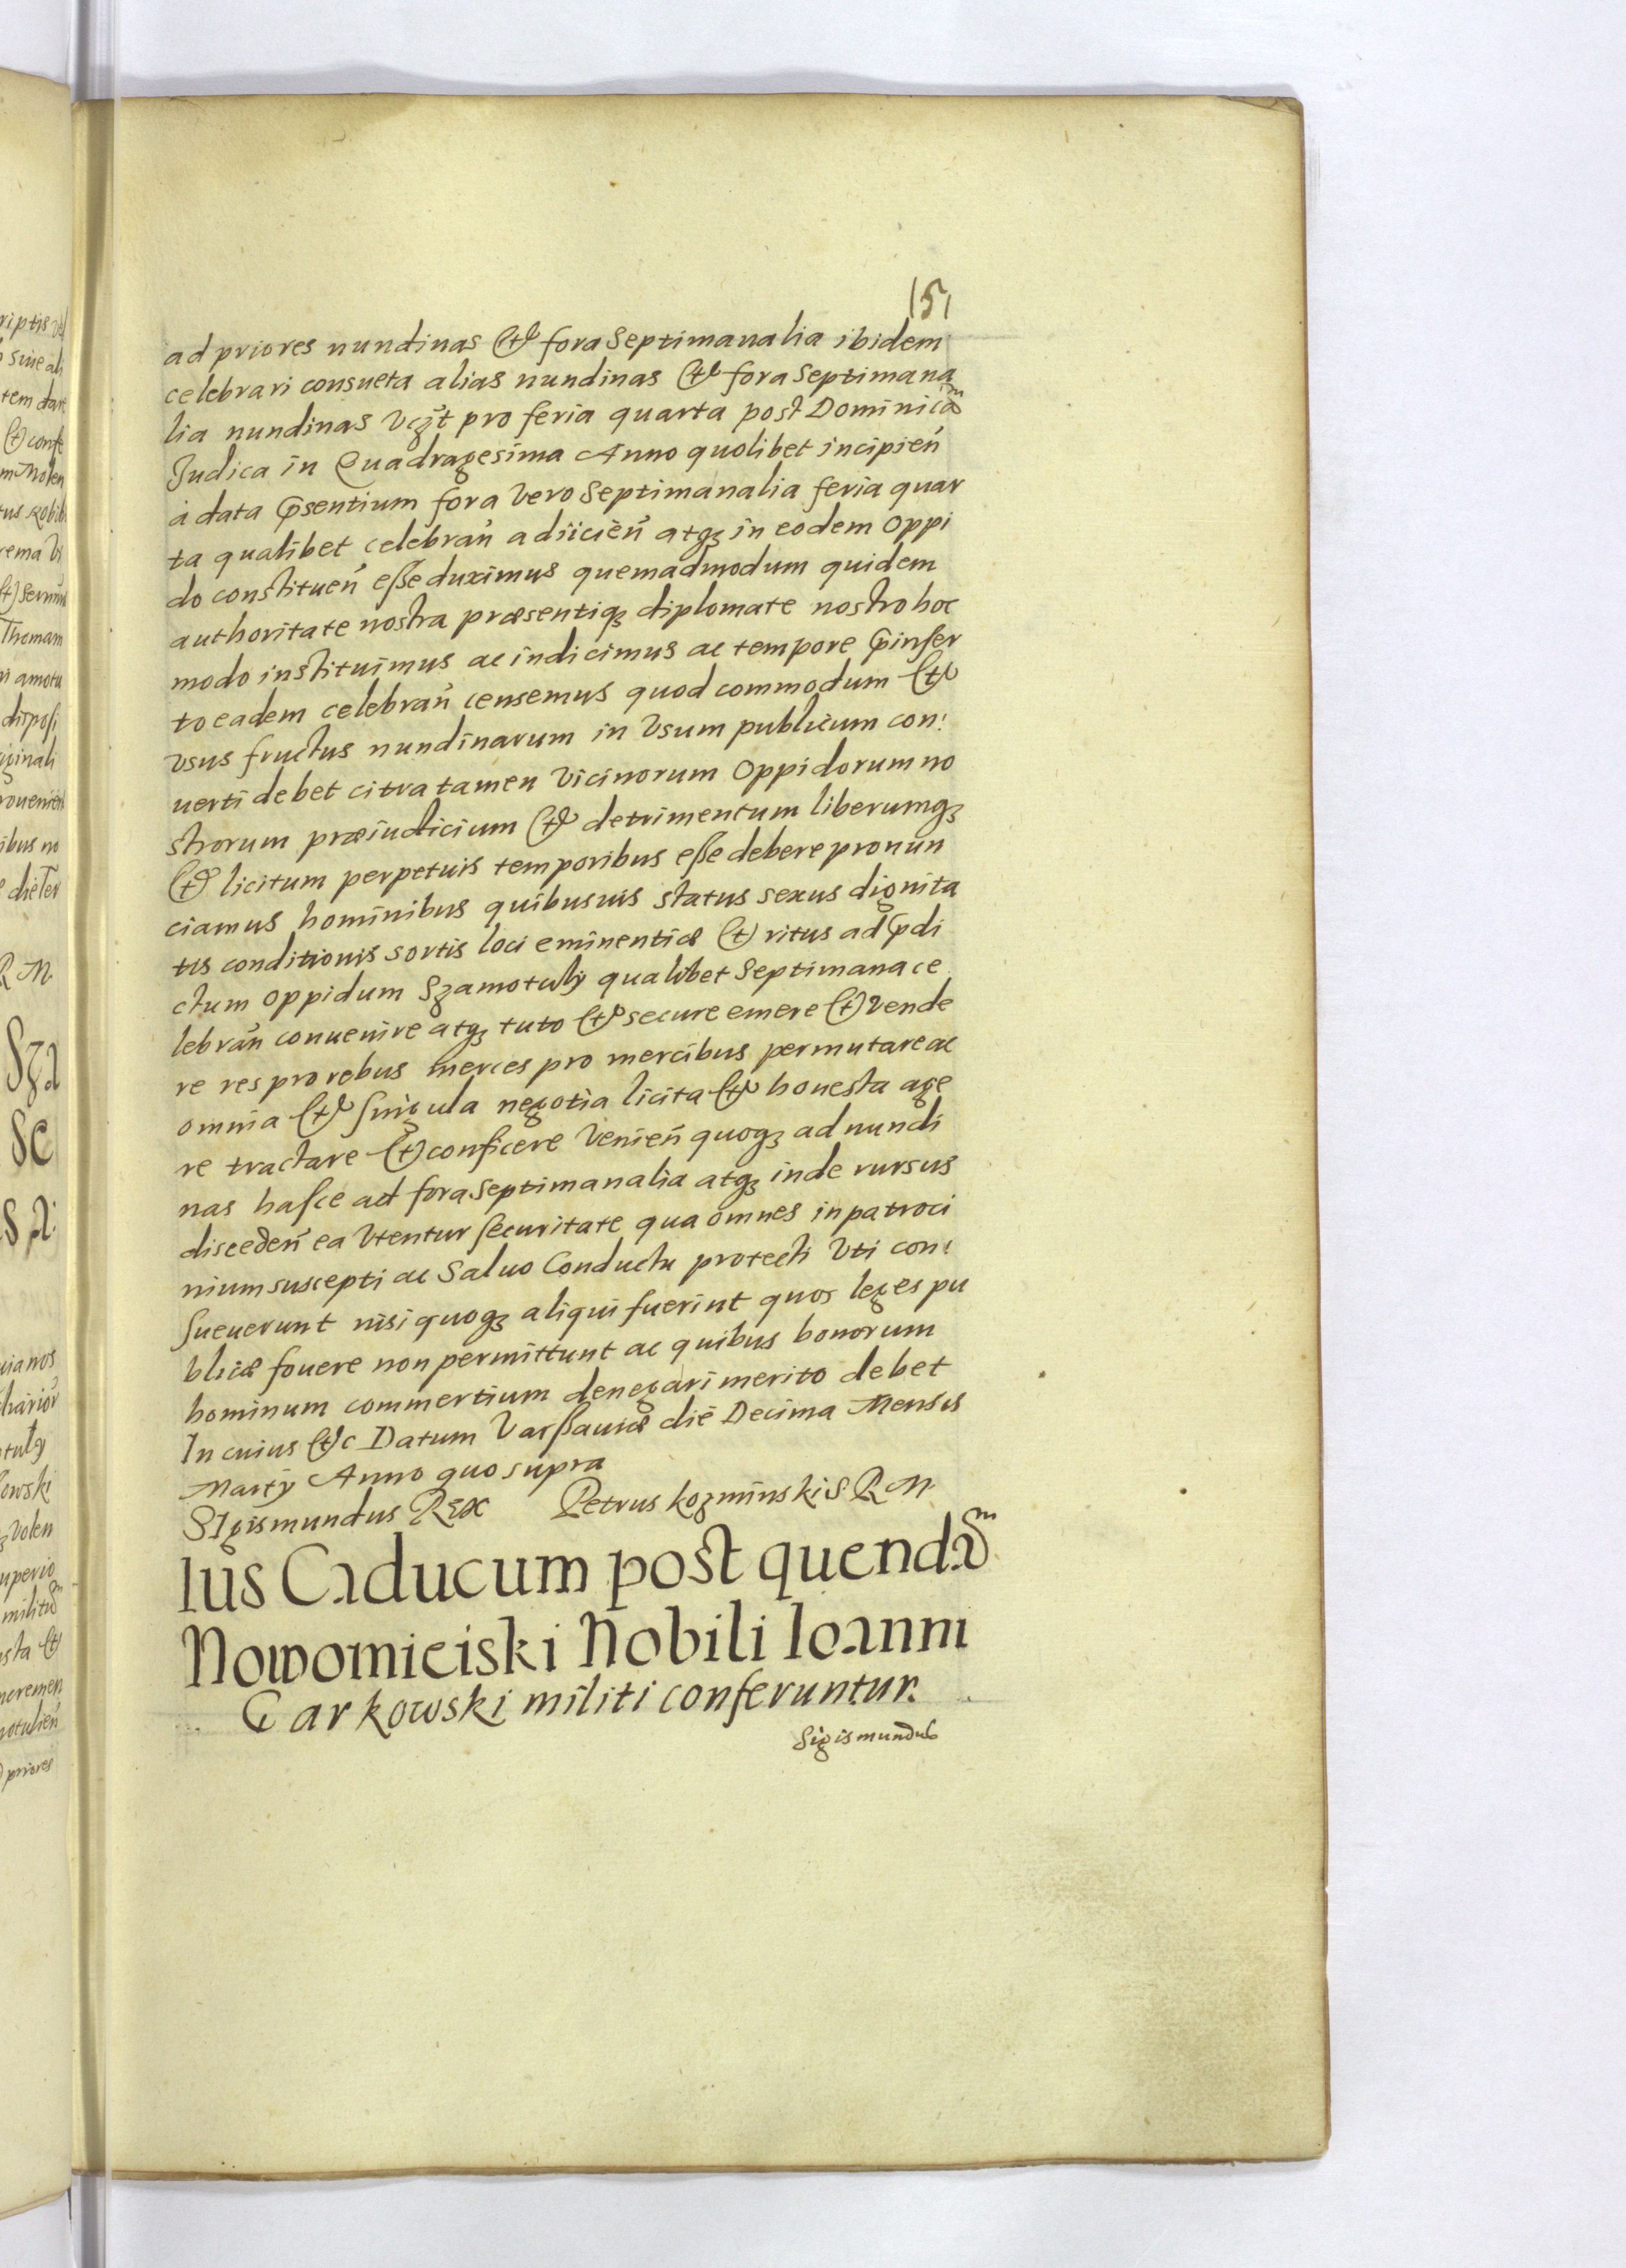 151
ad priores nundinas & fora Septimanalia ibidem
celebrari consueta alias nundinas & fora Septimana
lia nundinas vczt pro feria quarta post Dominicam
Iudica in Quadragesima Anno quolibet incipień
a data p̃sentium fora vero Septimanalia feria quar
ta qualibet celebrań adiicień atqꝫ in eodem Oppi
do constitueń esse duximus quemadmodum quidem
authoritate nostra præsentiqꝫ diplomate nostro hoc
modo instituimus ac indicimus ac tempore p̃inser
to eadem celebrań censemus quod commodum &
vsus fructus nundinarum in vsum publicum con:
uerti debet citra tamen vicinorum Oppidorum no
strorum præiudicium & detrimentum liberumqꝫ
& licitum perpetuis temporibus esse debere pronun
ciamus hominibus quibusuis status sexus dignita
tis conditionis sortis loci eminentiæ & ritus ad p̃di
ctum Oppidum Szamotuly qualibet Septimana ce
lebrań conuenire atqꝫ tuto & secure emere & vende
re res pro rebus merces pro mercibus permutare ac
omnia & singula negotia licita & honesta age
re tractare & conficere venień quoqꝫ ad nundi
nas hasce ad fora Septimanalia atqꝫ inde rursus
discedeń ea vtentur securitate qua omnes in patroci
nium suscepti ac Saluo Conductu protecti vti con:
sueuerunt nisi quoqꝫ aliqui fuerint quos leges pu
blicæ fouere non permittunt ac quibus bonorum
hominum commertium denegari merito debet
In cuius &c Datum Varssauiæ die Decima Mensis
Martij Anno quo supra
SIgismundus REX Petrus kozminski S R M
Ius Caducum post quendam
Nowomieiski Nobili Ioanni
Garkowski militi conferuntur.
Sigismundus